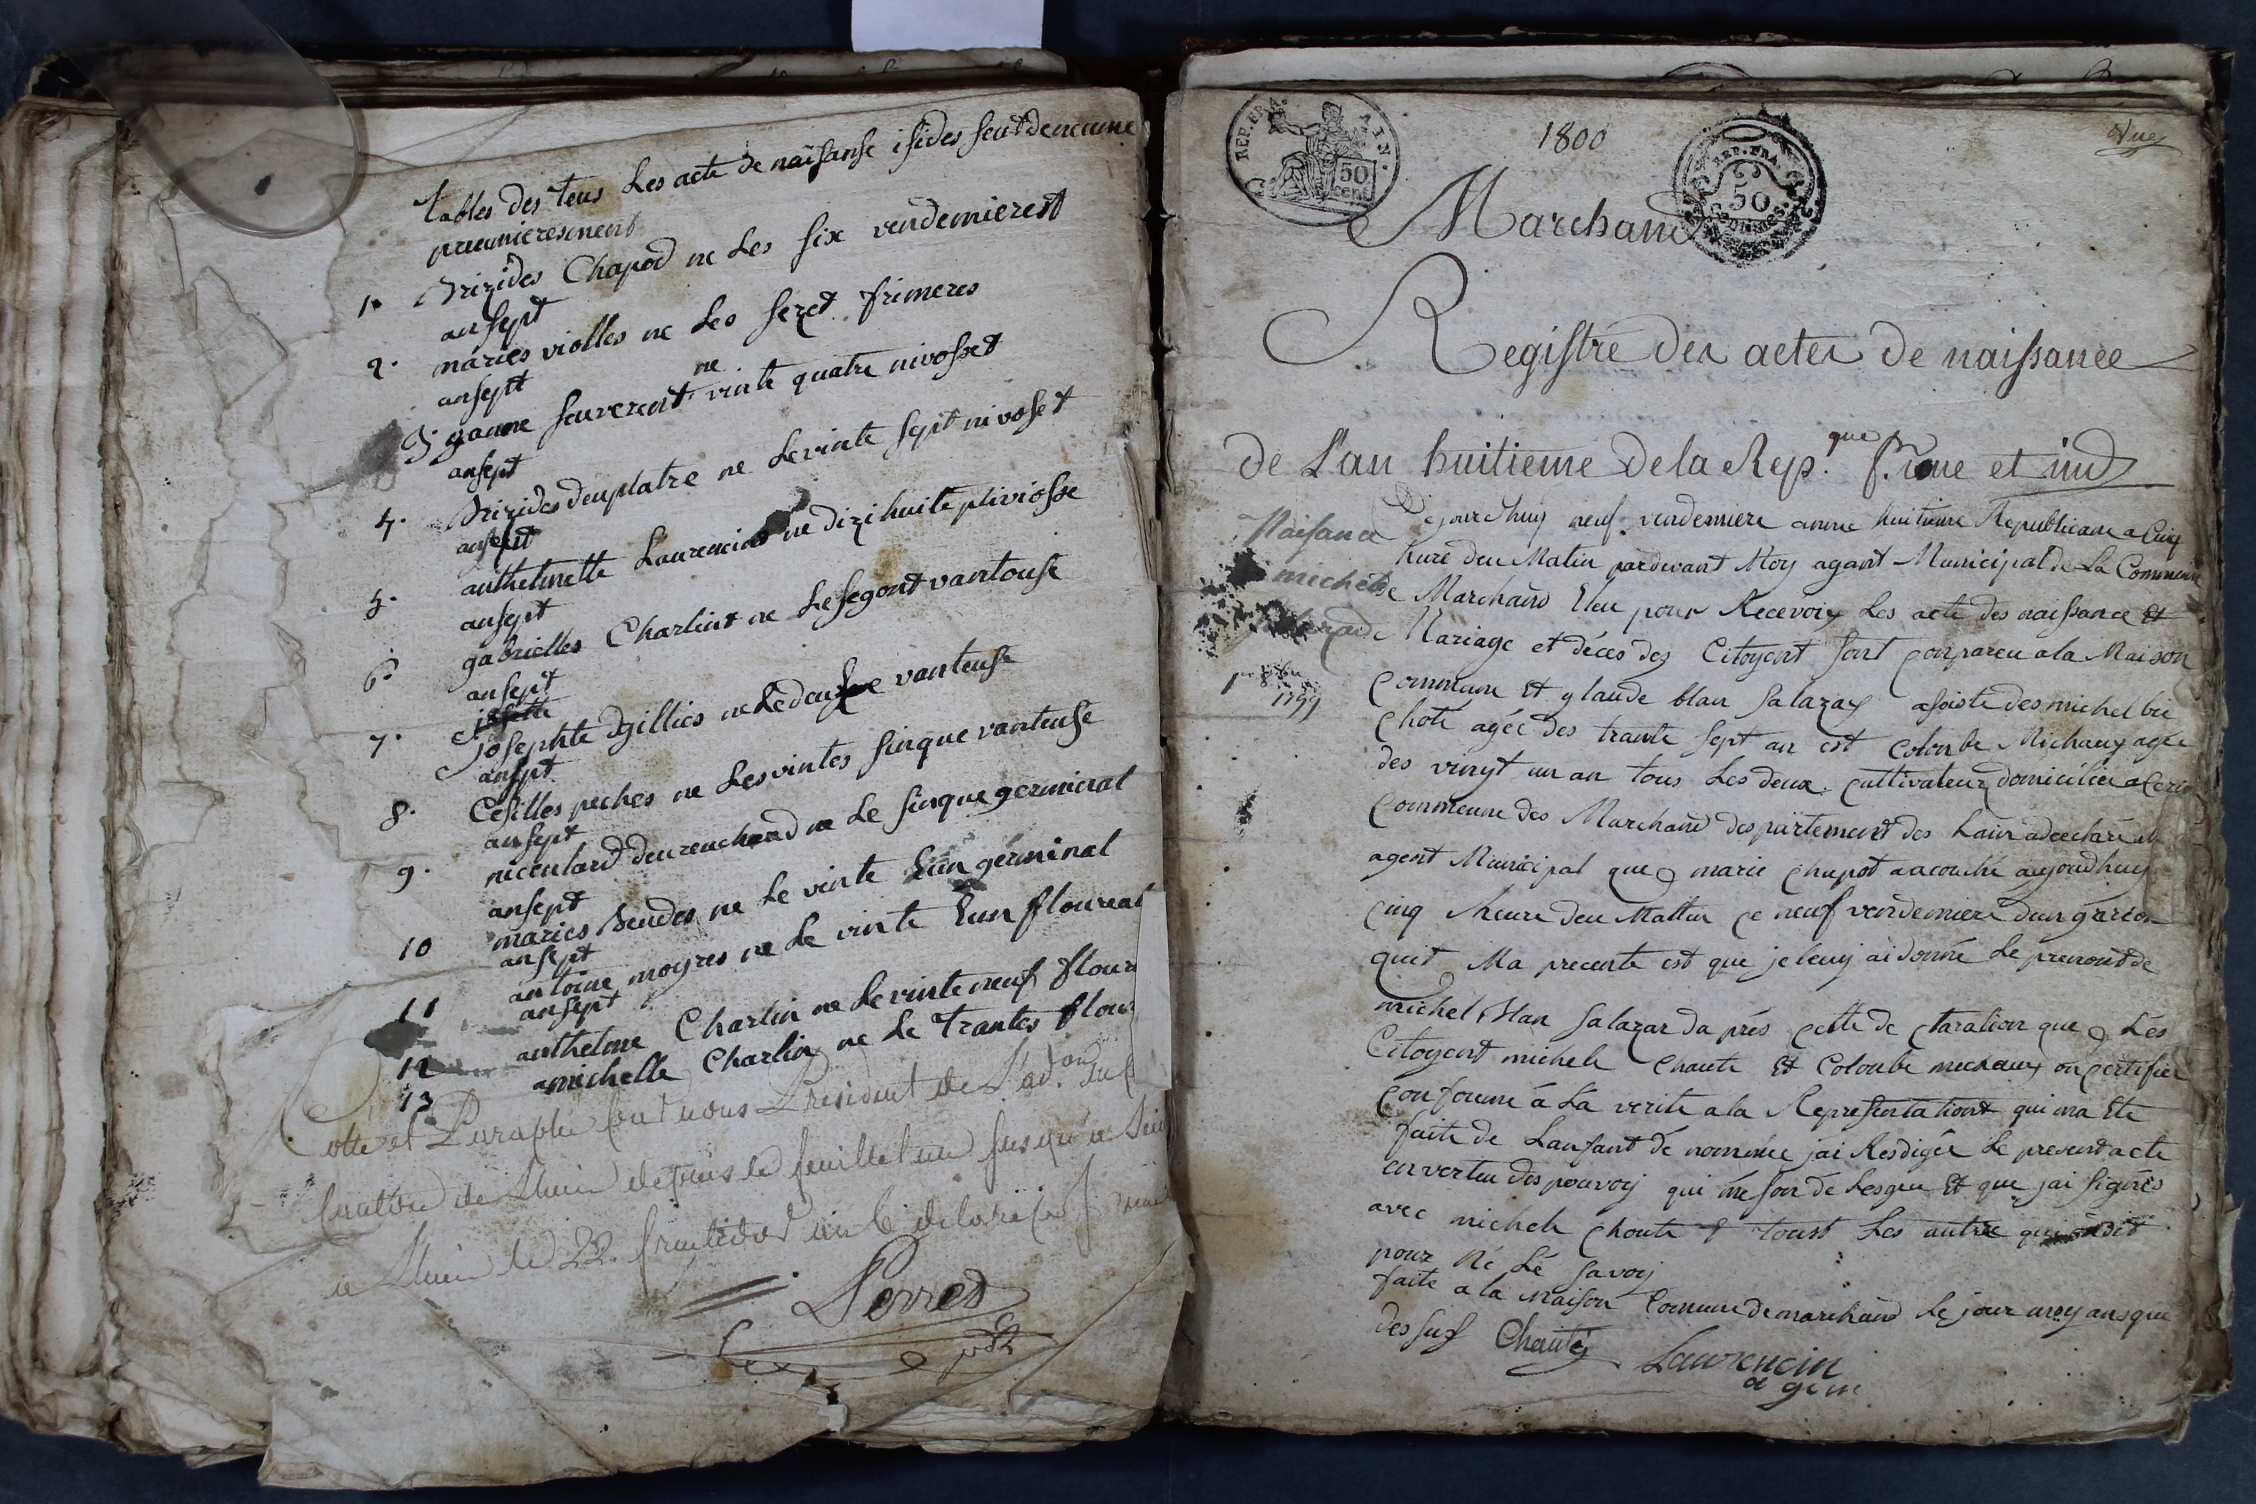 tables des tous Les acte de naisanse isides seut denneume
preumieresment
1. Brizides Chapod ne Les six vendemierest
ansept
2. maries violles ne Les sezet frimeres
ansept
3. ganne souverent ne vinte quatre nivosset
ansept
4. Brizides deuplatre ne Le vinte sept nivoset
ansept
5. anthelmette Laurencin ne dizihuite pliviosse
ansept
6. gabrielles Charlint ne Le segont vantouse
ansept
7. josephte Dgillies ne Le vanteuse
ansept
8. Cesilles peches ne Les vintes sinque vanteuse
ansept
9. niceulard deureuchand ne Le sinque germinal
ansept
10 maries Beudes ne Le vinte Eun germinal
ansept
11 antoine moyres ne Le vinte Eun floureal
ansept
12 anthelme Charlin ne Le vinte neuf flour
13 michelle Charlin ne Le trantes flour
Cotte et Paraphe par nous President de L'ad.on
de Lhuis depuis le feuillet un jusqu'a
a Lhuis le 22 fructidor an 6 de la rep
Perret
pdt
REP. FRA. AIN.
50 cent
1800
REP. FRA.
50
Centimes.
Marchand
Registre des actes de naissance
de L'an huitieme de la Rep.que f.ne et ind
Naisance
michel
1er 8bre
1799
Cejourdhuy neuf vendemiere anne huitieme Republicane a Cinq
hure deu Matin pardevant Moy agant Municipal de La Commune
de Marchand Eleu pour Recevoir Les acte des naissance Et
Mariage et déces des Citoyent sont conpareu a la Maison
Commune Et glaude blan Salazar asisté des michel bri
chote agée des trante sept an est Colonbe Michaux agée
des vingt un an tous Les deux cultivateur domiciliée a
Commeune des Marchand despartement des Lain a declaré
agent Municipal que marie chapot a acouché aujourdhuy
cinq heure deu Mattin ce neuf vendemiere deun garson
quit Ma precente est que je leuy ai donné Le prenont de
michel blan Salazar da prés cette de claration que Les
Citoyent michele chaute Et Colonbe michaux on certifiée
conforme á La verite a la Represantationt qui ma Ete
faite de Lansant dé nommée jai Resdigée Le present acte
en verteu des pouvoij qui me son dé Lesgeu Et que jai signés
avec michele choute & toust Les autre qui dit
pour Né Lé Savoij
faite a la Maison Commune de marchand Le jour moy ansque
dessus Chauté Laurencin
agent